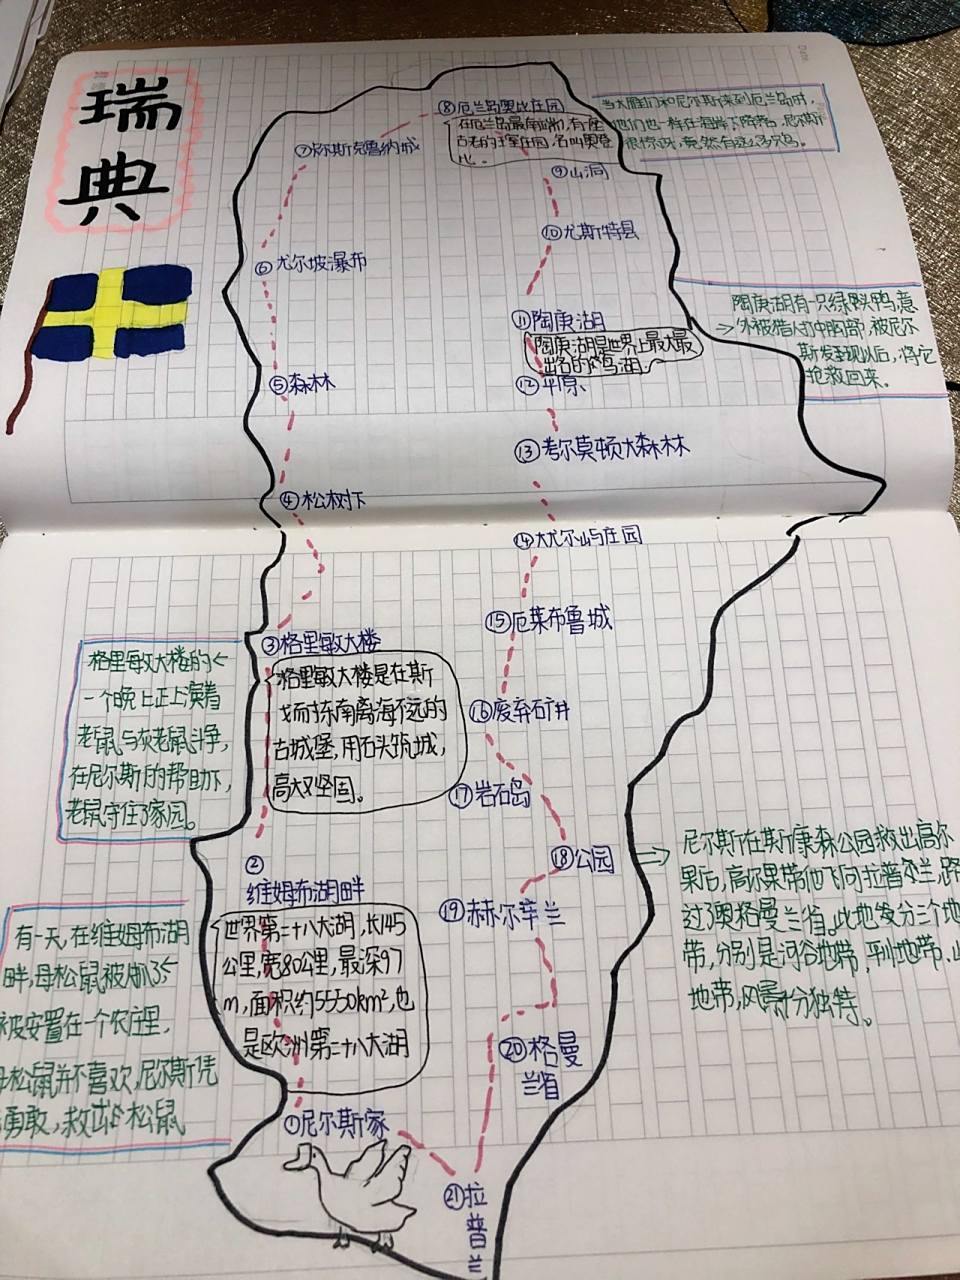 瑞
典
⑧厄兰岛奥比庄园
在厄兰岛最南端,有一座
古老的王室庄园,名叫奥登
比.
当大雁们和尼尔斯来到厄兰岛时,
他们也一样在海岸下
尼尔斯
很惊讶,竟然有这么多鸟。
⑦斯克鲁纳城
⑨山洞
⑩尤斯特县
⑥尤尔坡瀑布
⑪陶庚湖
陶庚湖是世界上最大最
出名的鸟湖.
陶庚湖有一只绿头鸭,意
外被猎人打中胸部,被尼尔
斯发现以后,将它
抢救回来。
⑤森林
⑫平原
⑬考尔莫顿大森林
④松树下
⑭大尤尔屿庄园
⑮厄莱布鲁城
③格里敏大楼
格里敏大楼是在斯
东南离海不远的
古城堡,用石头筑城,
高大又坚固。
格里敏大楼的
一个晚上正上演着
老鼠与灰老鼠斗争,
在尼尔斯的帮助下,
老鼠守住了家园。
⑯废弃矿井
⑰岩石岛
⑱公园
②
维姆布湖畔
世界第二十八大湖,长145
公里,宽80公里,最深97
m,面积约5550km²,也
是欧洲第二十八大湖
有一天,在维姆布湖
畔,母松鼠被
被安置在一个农庄里,
松鼠并不喜欢,尼尔斯凭
勇敢,救出松鼠
⑲赫尔辛兰
尼尔斯在斯康森公园救出高尔
果后,高尔果带他飞向拉普兰,路
过了奥格曼兰省。此地发分三个地
带,分别是河谷地带,平川地带、山
地带,风景十分独特。
⑳格曼
兰省
①尼尔斯家
㉑拉
普
兰